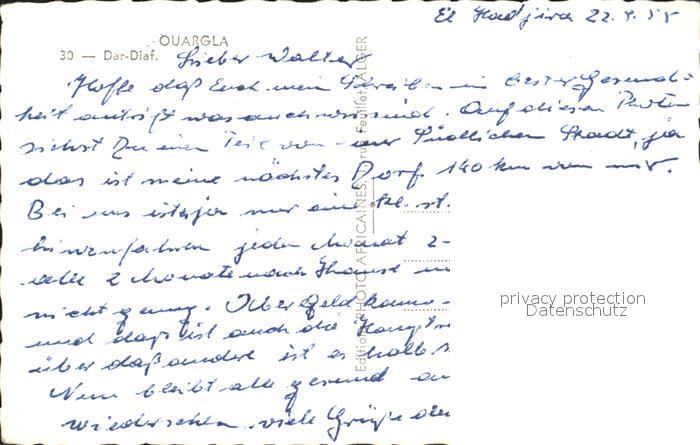 El Hadjira 22.4.58
OUARGLA
30 — Dar-Diaf.
Lieber Walter
Hoffe daß Euch mein Schreiben in bester Gesund-
heit antrifft was auch wir sind. Auf diesen Karten
siehst Du einen Teil von der Südlichen Stadt, ja
das ist meine nächstes Dorf 140 km von mir.
Bei uns ist ja nur eine kl. st.
hinzufahren jeden Monat 2-
alle 2 Monate nach Hause
nicht genug. Aber Geld
und das ist auch die
über das andere ist es halb
Nun bleibt alle gesund
wiedersehen viele Grüße
Editions PHOTO-AFRICAINES, rue Feuillet, ALGER
privacy protection
Datenschutz